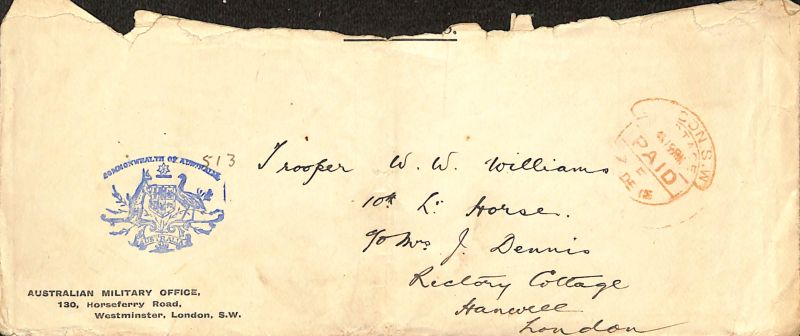 S.
COMMONWEALTH OF AUSTRALIA
513
AUSTRALIA
AUSTRALIAN MILITARY OFFICE,
130, Horseferry Road,
Westminster, London, S.W.
Trooper W. W. Williams
10th Lt Horse.
c/o Mrs J. Dennis
Rectory Cottage
Hanwell
London
DON. S.W.
PAID
7 DE